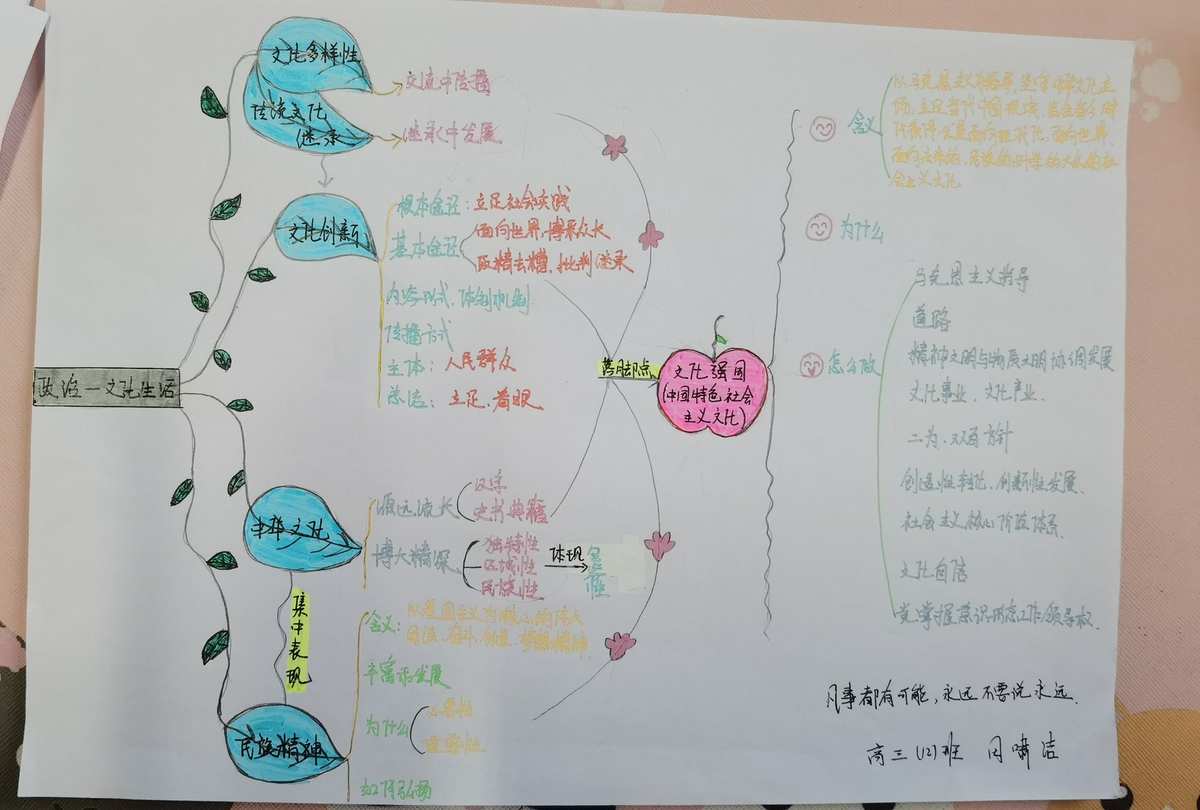 政治—文化生活
文化多样性
传统文化
继承
交流中传播
继承中发展
文化创新
根本途径：立足社会实践
基本途径
面向世界，博采众长
取精去糟，批判继承
内容形式、体制机制
传播方式
主体：人民群众
总结：立足、着眼
中华文化
源远流长
汉字
史书典籍
博大精深
独特性
区域性
民族性
体现
包
容
集中表现
民族精神
含义：
以爱国主义为核心的伟大
创造、奋斗、团结、梦想精神
丰富和发展
为什么
必要性
重要性
如何弘扬
落脚点
文化强国
(中国特色社会
主义文化)
含义
以马克思主义为指导，坚守中华文化立
场，立足当代中国现实，结合当今时
代条件，发展面向现代化、面向世界、
面向未来的，民族的科学的大众的社
会主义文化
为什么
怎么做
马克思主义指导
道路
精神文明与物质文明协调发展
文化事业、文化产业、
二为、双百方针
创造性转化、创新性发展、
社会主义核心价值体系
文化自信
党掌握意识形态工作领导权.
凡事都有可能，永远不要说永远.
高三(12)班 闫啸洁